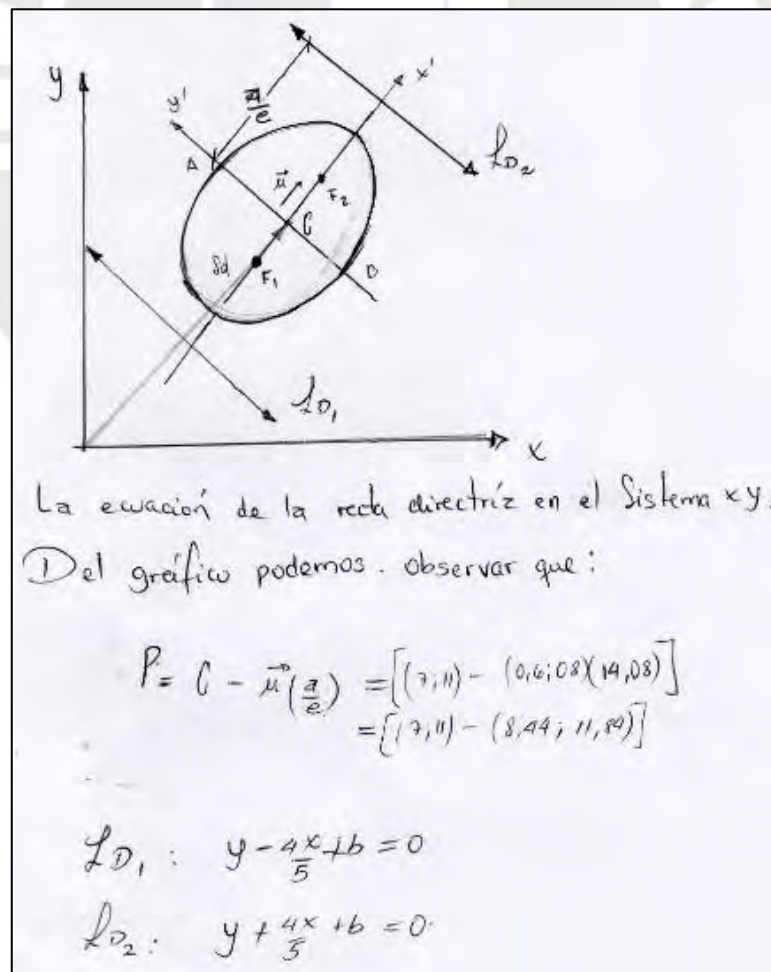 y
y'
a/e
x'
A
𝓛D₂
μ⃗
F₂
C
F₁
B
𝓛D₁
x
La ecuación de la recta directríz en el Sistema xy.
Del gráfico podemos. observar que:
P = C - μ⃗(a/e) = [(7,11) - (0,6;08)(14,08)]
= [(7,11) - (8,44; 11,84)]
𝓛D₁: y - 4x/5 + b = 0
𝓛D₂: y + 4x/5 + b = 0.